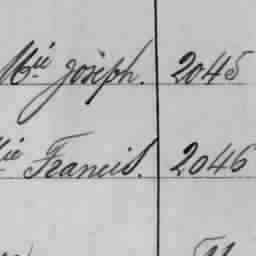 Mie Joseph. 2045
ie Francis. 2046